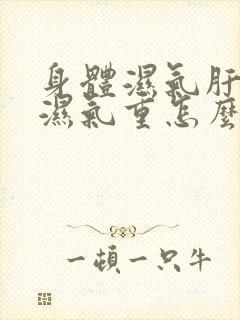 身體濕氣肝
濕氣重怎麼
一頓一只牛